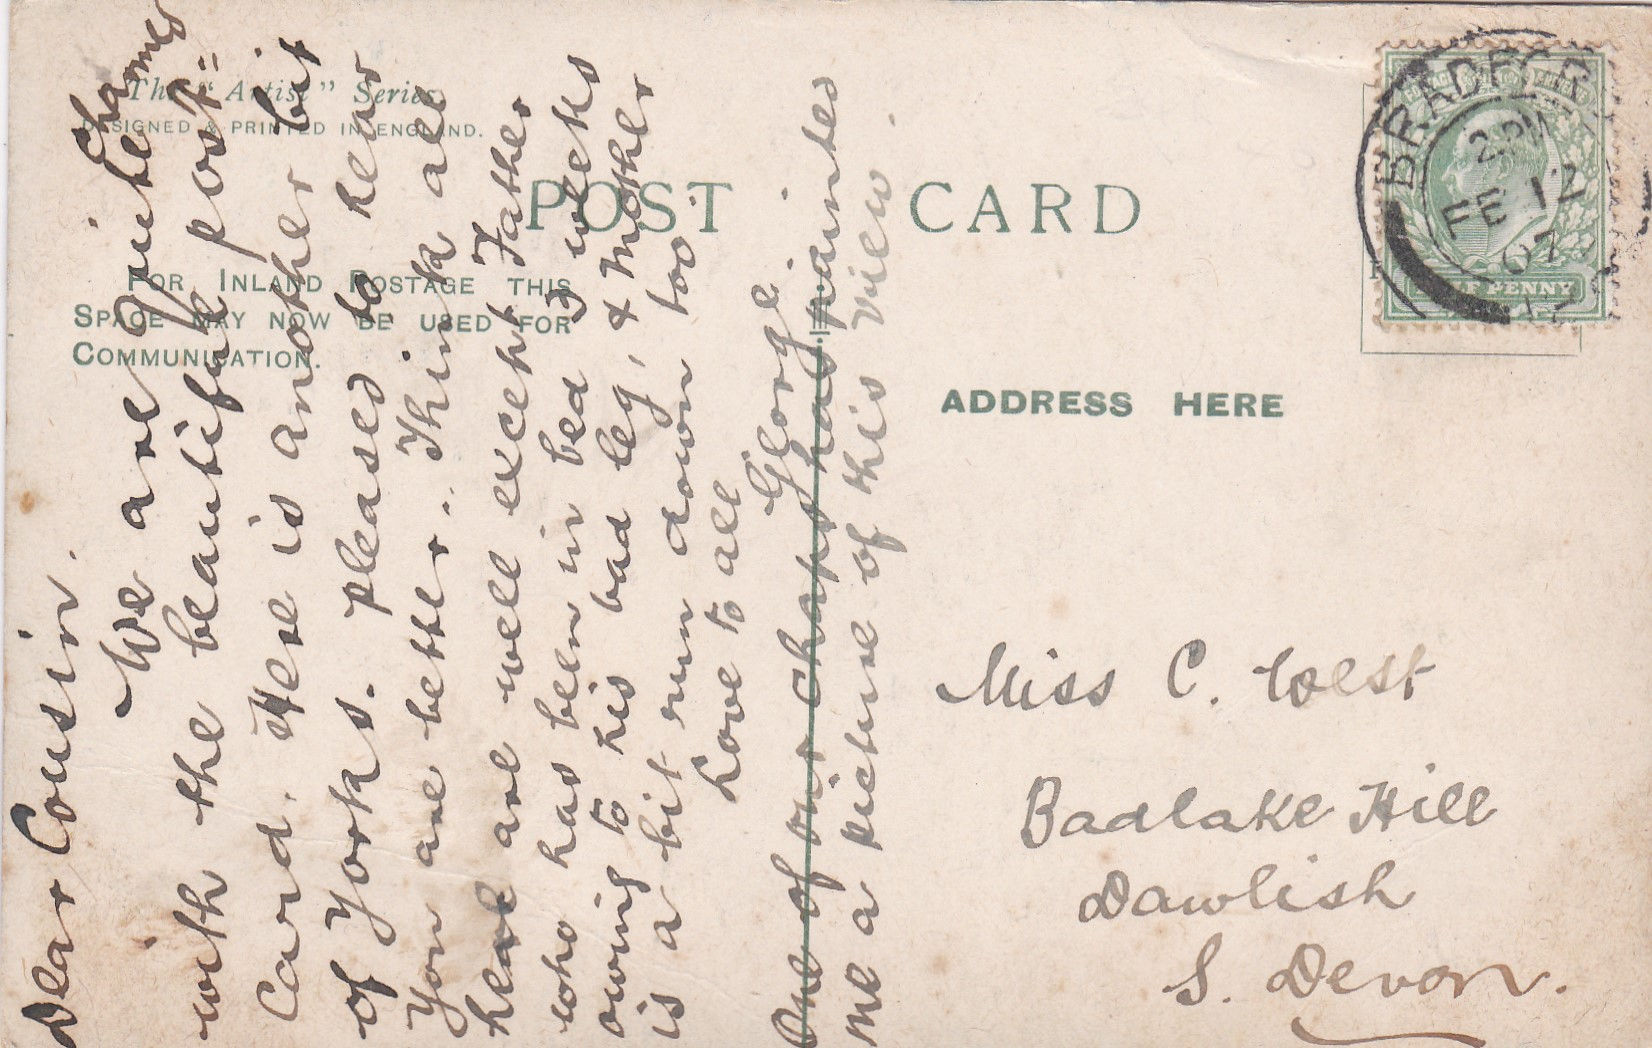 The "Artist" Series
DESIGNED & PRINTED IN ENGLAND.
POST CARD
FOR INLAND POSTAGE THIS
SPACE MAY NOW BE USED FOR
COMMUNICATION.
ADDRESS HERE
BRADFORD
2 PM
FE 12
07
HALF PENNY
Dear Cousin.
We are quite charmed
with the beautiful post=
Card. Here is another bit
of Yorks. pleased to hear
you are better. Think all
here are well except Father
who has been in bed 3 weeks
owing to his bad leg, & Mother
is a bit run down too.
Love to all
George.
One of our chaps has painted
me a picture of this view.
Miss C. West
Badlake Hill
Dawlish
S. Devon.